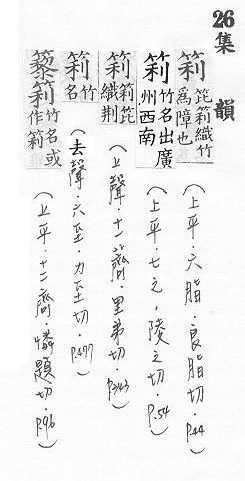 26
集韻
筣 笓筣織竹為障也 (上平·六脂·良脂切·P.44)
筣 竹名出廣州西南 (上平·七之·陵之切·P.54)
筣 筣笓織荆 (上聲·十一薺·里弟切·P.343)
筣 竹名 (去聲·六至·力至切·P.477)
筣 竹名或作筣 (上平·十二齊·憐題切·P.96)